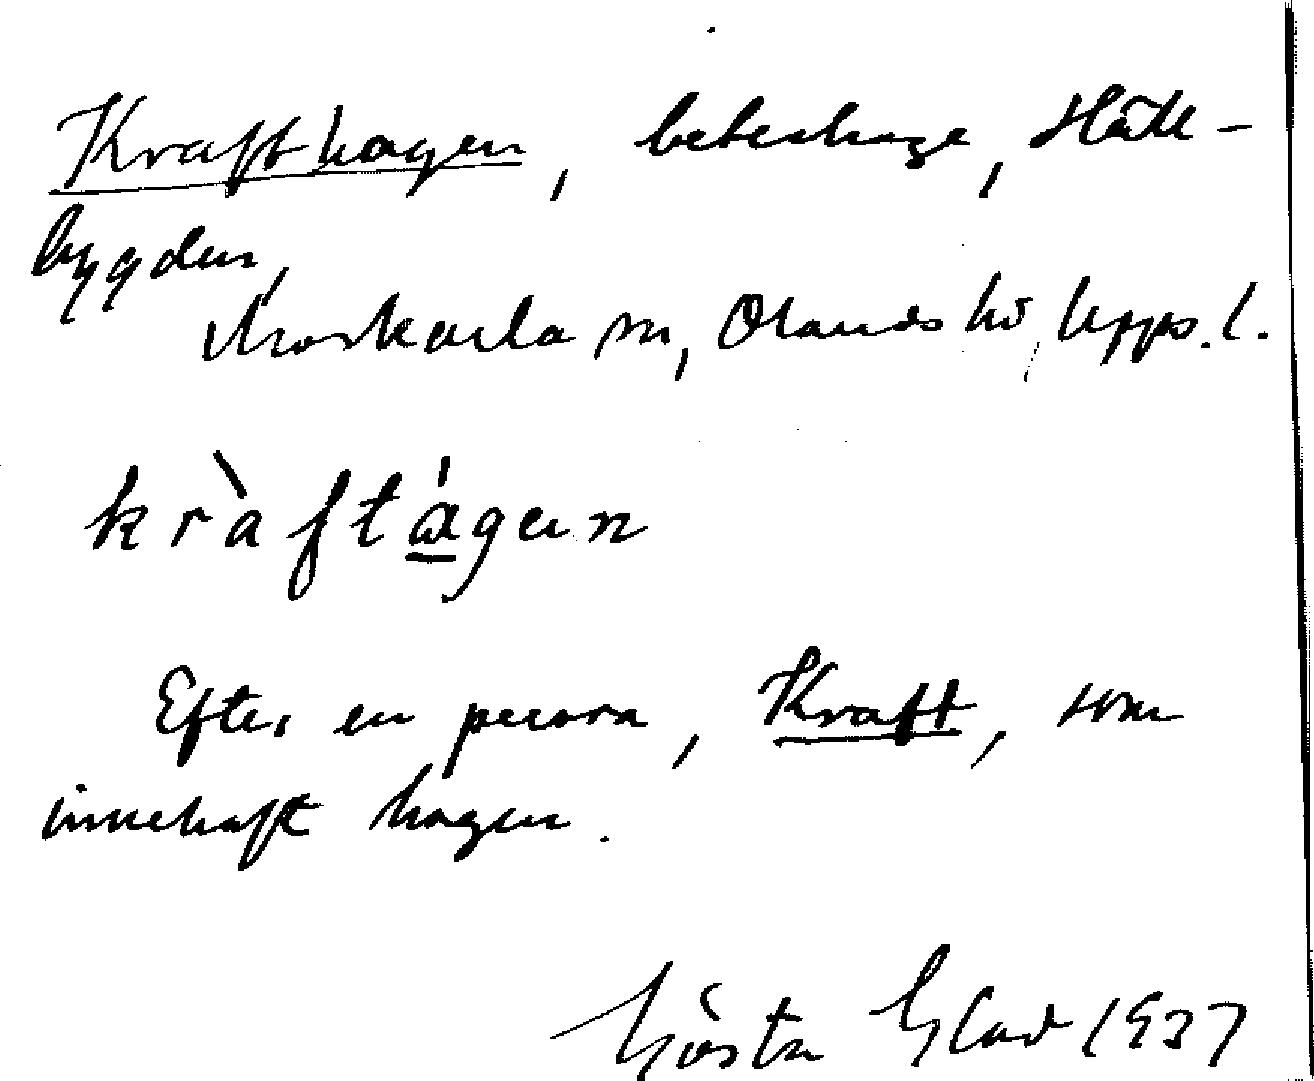 Krafthagen, beteshage, Håll-
bygden,
Morkarla sn, Olands hd, Upps. l.
kràftágen
Efter en person, Kraft, som
innehaft hagen.
Gösta Glad 1937